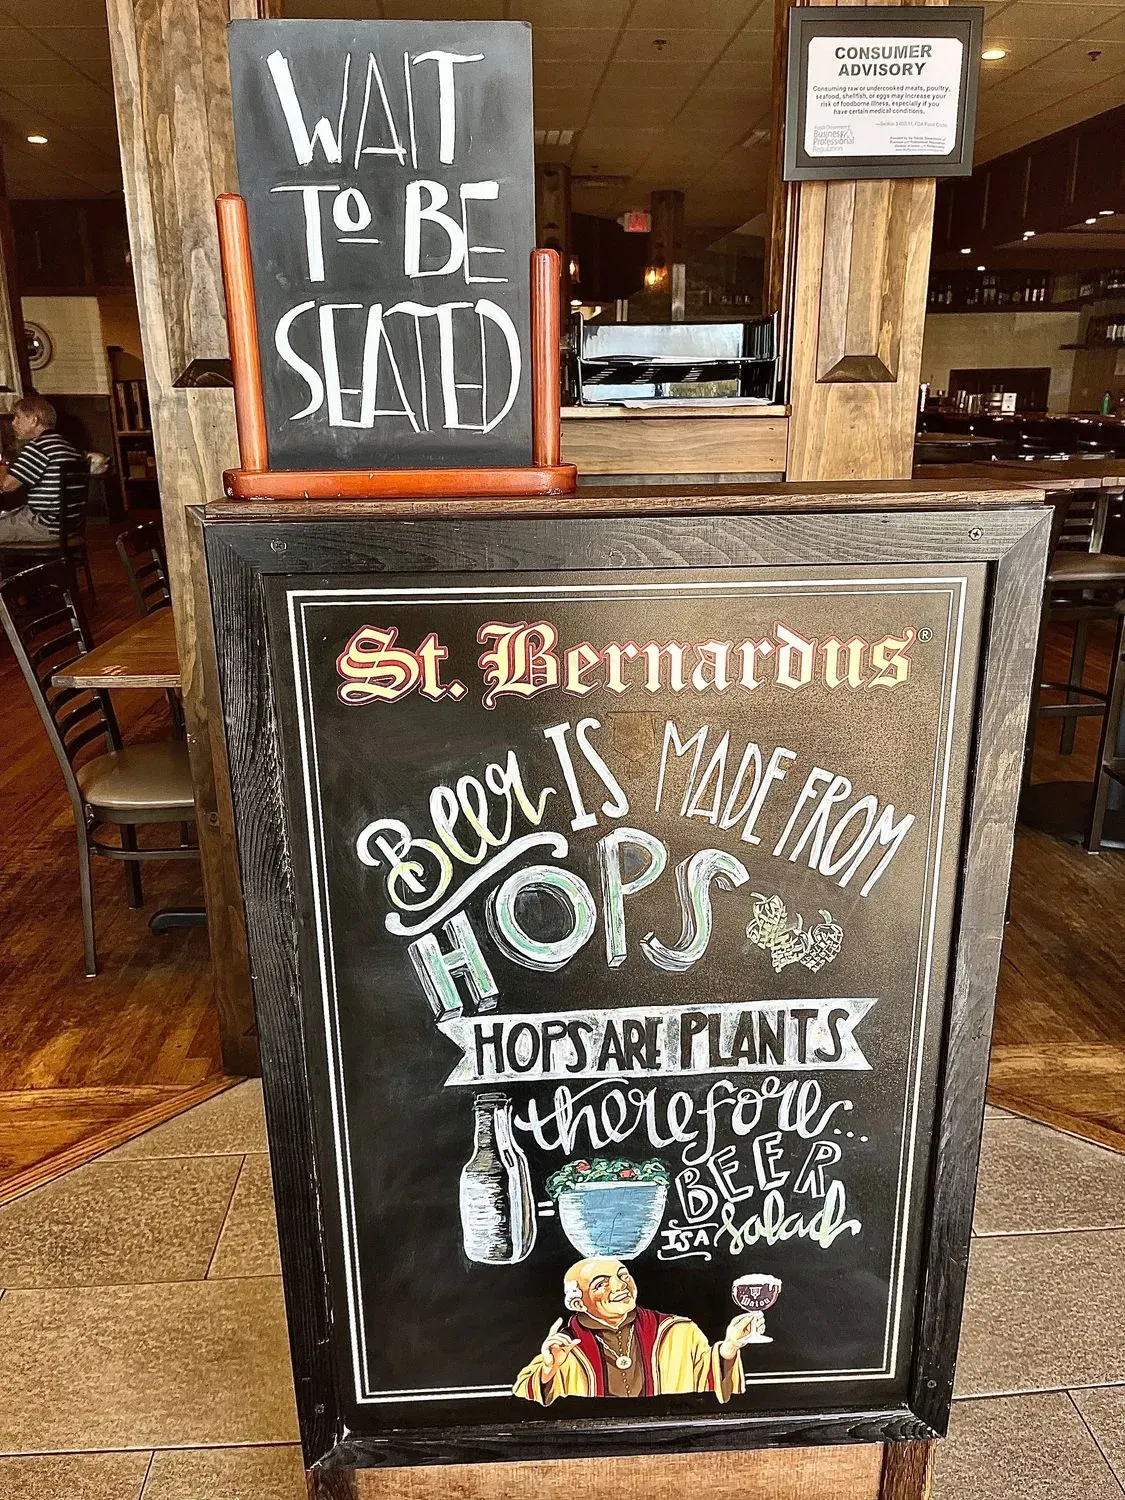 WAIT
TO BE
SEATED
CONSUMER
ADVISORY
Consuming raw or undercooked meats, poultry,
seafood, shellfish, or eggs may increase your
risk of foodborne illness, especially if you
have certain medical conditions.
—Section 3-603.11, FDA Food Code
Business &
Professional
Regulation
St. Bernardus®
Beer IS MADE FROM
HOPS
HOPS ARE PLANTS
therefore...
= BEER
IS A salad